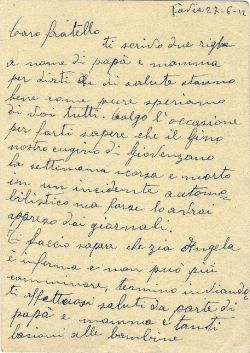 Pavia 27-6-12
Caro fratello ti scrivo due righe
a nome di papà e mamma
per dirti di di salute stanno
bene come pure speriamo
di voi tutti. Colgo l'occasione
per farti sapere che il Gino
nostro cugino di Giovenzano
la settimana scorsa è morto
in un incidente automo
bilistico ma forse lo avrai
appreso dai giornali.
Ti faccio sapere che zia Angela
è inferma e non può più
camminare, termino inviando
ti affettuosi saluti da parte di
papà e mamma e tanti
bacioni alle bambine